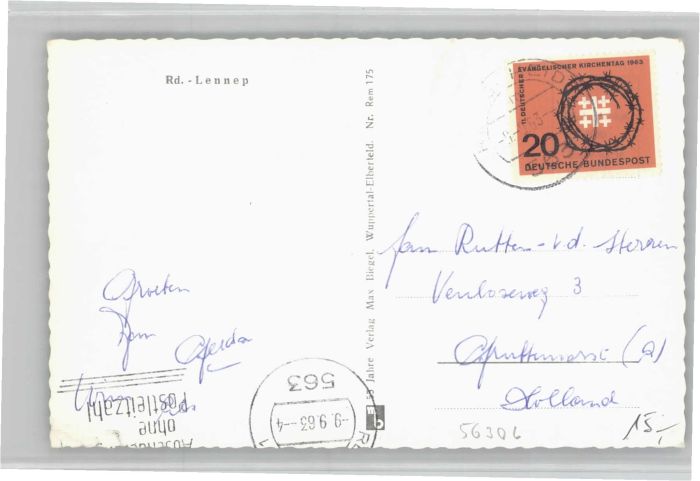 Rd. - Lennep
Groeten
Gerda
Postleitzahl
ohne
563
-9.9.63--4
55 Jahre Verlag Max Biegel, Wuppertal-Elberfeld. Nr. Rem 175
11. DEUTSCHER EVANGELISCHER KIRCHENTAG 1963
20
DEUTSCHE BUNDESPOST
Fam Rutten - v.d. Sterren
Venloseweg 3
(L)
Holland
56306
15,-